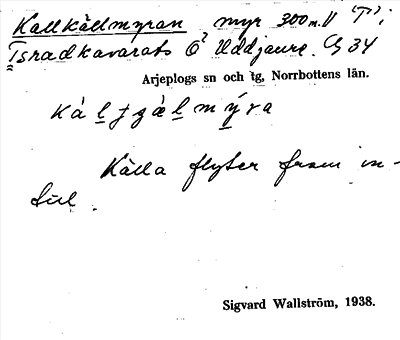 Kallkällmyran myr 300 m. V
Tsradkavarats Ö Uddjaure. Cg 34
Arjeplogs sn och tg, Norrbottens län.
Källa flyter fram in-
till.
Sigvard Wallström, 1938.